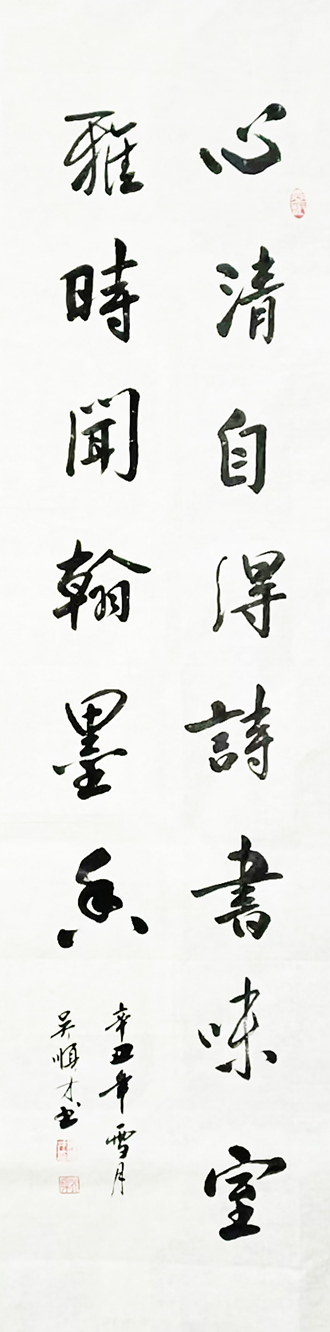 心清自得詩書味室
雅時聞翰墨香
辛丑年雪月
吳順才書